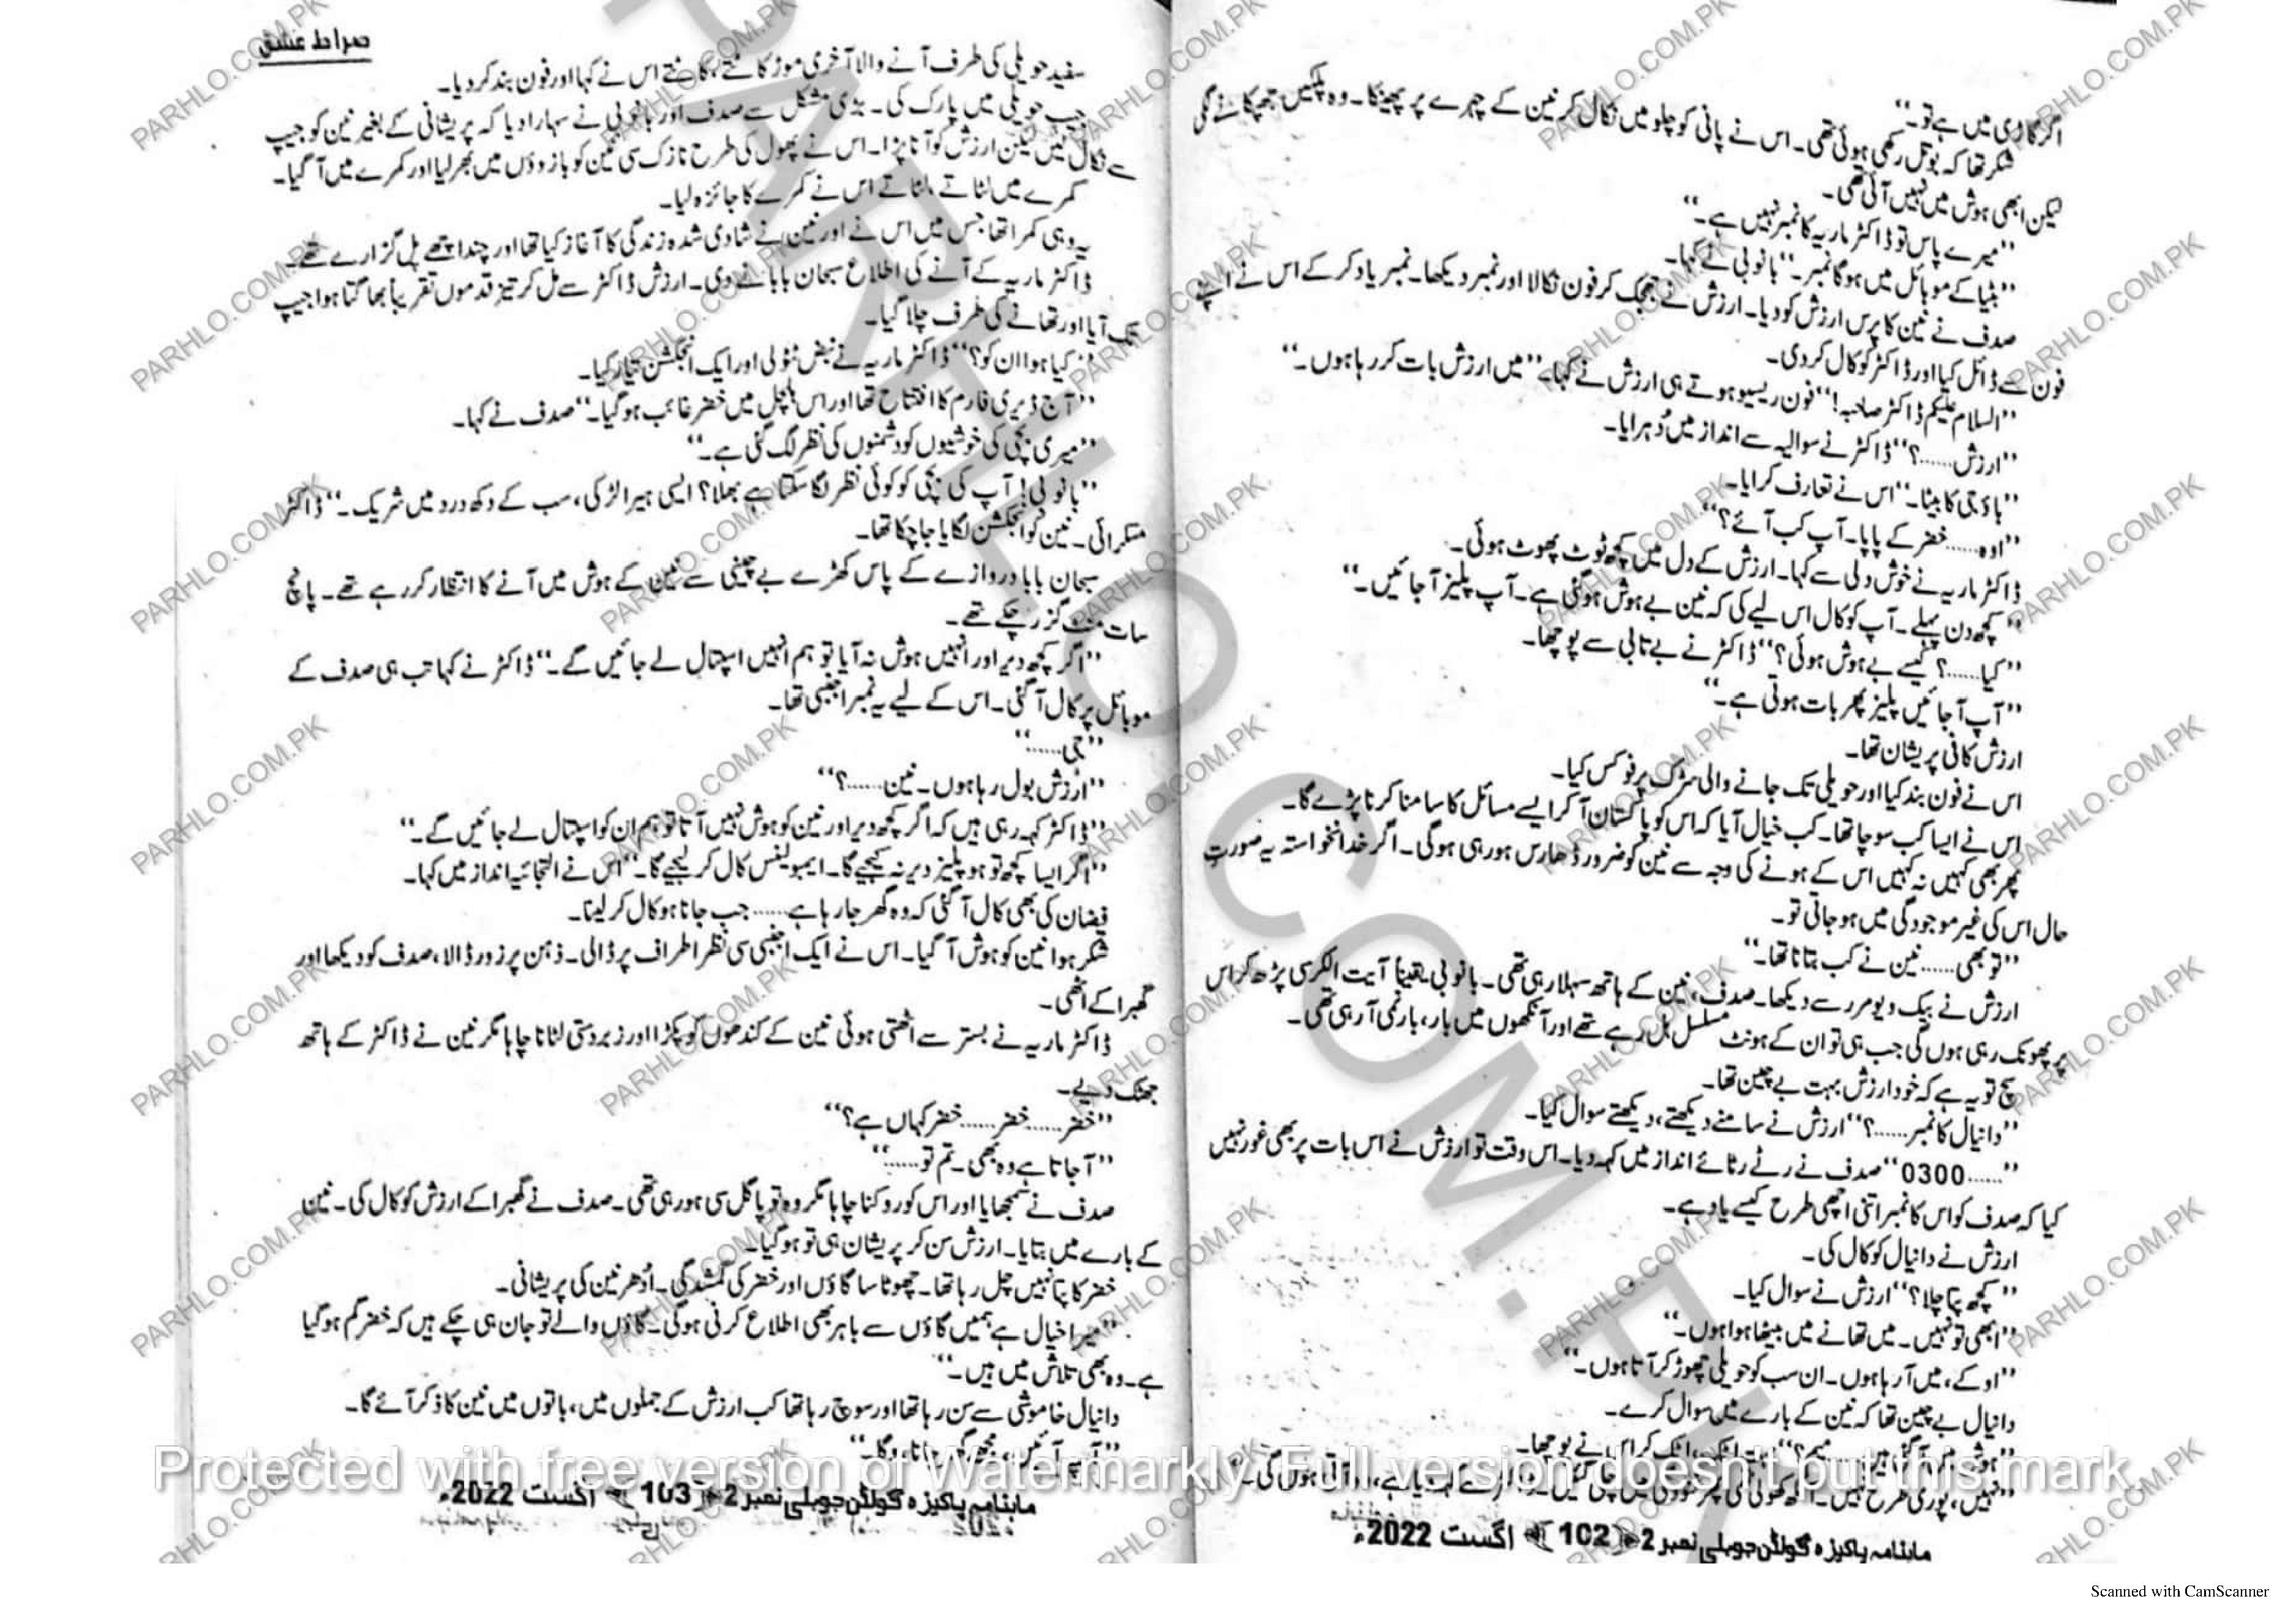 اگر گاڑی میں ہے تو۔‘‘
شکر تھا کہ بوتل رکھی ہوئی تھی۔ اس نے پانی کو چلو میں نکال کر نین کے چہرے پر پھینکا۔ وہ پلکیں جھپکانے لگی
لیکن ابھی ہوش میں نہیں آئی تھی۔
’’میرے پاس تو ڈاکٹر ماریہ کا نمبر نہیں ہے۔‘‘
’’بٹیا کے موبائل میں ہوگا نمبر۔‘‘ بانو بی نے کہا۔
صدف نے نین کا پرس ارزش کو دیا۔ ارزش نے جھجک کر فون نکالا اور نمبر دیکھا۔ نمبر یاد کر کے اس نے اپنے
فون سے ڈائل کیا اور ڈاکٹر کو کال کر دی۔
’’السلام علیکم ڈاکٹر صاحبہ!‘‘ فون ریسیو ہوتے ہی ارزش نے کہا۔ ’’میں ارزش بات کر رہا ہوں۔‘‘
’’ارزش......؟‘‘ ڈاکٹر نے سوالیہ سے انداز میں دُہرایا۔
’’باؤ جی کا بیٹا۔‘‘ اس نے تعارف کرایا۔
’’اوہ...... خضر کے پاپا۔ آپ کب آئے؟‘‘
ڈاکٹر ماریہ نے خوش دلی سے کہا۔ ارزش کے دل میں کچھ ٹوٹ پھوٹ ہوئی۔
’’کچھ دن پہلے۔ آپ کو کال اس لیے کی کہ نین بے ہوش ہوگئی ہے۔ آپ پلیز آ جائیں۔‘‘
’’کیا......؟ کیسے بے ہوش ہوئی؟‘‘ ڈاکٹر نے بے تابی سے پوچھا۔
’’آپ آ جائیں پلیز پھر بات ہوتی ہے۔‘‘
ارزش کافی پریشان تھا۔
اس نے فون بند کیا اور حویلی تک جانے والی سڑک پر فوکس کیا۔
اس نے ایسا کب سوچا تھا۔ کب خیال آیا کہ اس کو پاکستان آ کر ایسے مسائل کا سامنا کرنا پڑے گا۔
پھر بھی کہیں نہ کہیں اس کے ہونے کی وجہ سے نین کو ضرور ڈھارس ہو رہی ہوگی۔ اگر خدانخواستہ یہ صورتِ
حال اس کی غیر موجودگی میں ہو جاتی تو۔
’’تو بھی...... نین نے کب بتانا تھا۔‘‘
ارزش نے بیک ویو مرر سے دیکھا۔ صدف، نین کے ہاتھ سہلا رہی تھی۔ بانو بی یقیناً آیت الکرسی پڑھ کر اس
پر پھونک رہی ہوں گی جب ہی تو ان کے ہونٹ مسلسل ہل رہے تھے اور آنکھوں میں بار، بار نمی آ رہی تھی۔
سچ تو یہ ہے کہ خود ارزش بہت بے چین تھا۔
’’دانیال کا نمبر......؟‘‘ ارزش نے سامنے دیکھتے، دیکھتے سوال کیا۔
’’......0300‘‘ صدف نے رٹے رٹائے انداز میں کہہ دیا۔ اس وقت تو ارزش نے اس بات پر بھی غور نہیں
کیا کہ صدف کو اس کا نمبر اتنی اچھی طرح کیسے یاد ہے۔
ارزش نے دانیال کو کال کی۔
’’کچھ پتا چلا؟‘‘ ارزش نے سوال کیا۔
’’ابھی تو نہیں۔ میں تھانے میں بیٹھا ہوا ہوں۔‘‘
’’اوکے، میں آ رہا ہوں۔ ان سب کو حویلی چھوڑ کر آتا ہوں۔‘‘
دانیال بے چین تھا کہ نین کے بارے میں سوال کرے۔
’’نہیں، پوری طرح نہیں۔
ماہنامہ پاکیزہ گولڈن جوبلی نمبر 2 102 اگست 2022ء
صراط عشق
سفید حویلی کی طرف آنے والا آخری موڑ کاٹتے، کاٹتے اس نے کہا اور فون بند کر دیا۔
جیپ حویلی میں پارک کی۔ بڑی مشکل سے صدف اور بانو بی نے سہارا دیا کہ پریشانی کے بغیر نین کو جیپ
سے نکال لیں لیکن ارزش کو آنا پڑا۔ اس نے پھول کی طرح نازک سی نین کو بازوؤں میں بھر لیا اور کمرے میں آ گیا۔
کمرے میں لٹاتے، لٹاتے اس نے کمرے کا جائزہ لیا۔
یہ وہی کمرا تھا جس میں اس نے اور نین نے شادی شدہ زندگی کا آغاز کیا تھا اور چند اچھے پل گزارے تھے۔
ڈاکٹر ماریہ کے آنے کی اطلاع سبحان بابا نے دی۔ ارزش ڈاکٹر سے مل کر تیز قدموں تقریباً بھاگتا ہوا جیپ
تک آیا اور تھانے کی طرف چلا گیا۔
’’کیا ہوا ان کو؟‘‘ ڈاکٹر ماریہ نے نبض ٹٹولی اور ایک انجکشن تیار کیا۔
’’آج ڈیری فارم کا افتتاح تھا اور اس ہلچل میں خضر غائب ہو گیا۔‘‘ صدف نے کہا۔
’’میری بچی کی خوشیوں کو دشمنوں کی نظر لگ گئی ہے۔‘‘
’’بانو بی! آپ کی بچی کو کوئی نظر لگا سکتا ہے بھلا؟ ایسی ہیرا لڑکی، سب کے دکھ درد میں شریک۔‘‘ ڈاکٹر
مسکرائی۔ نین کو انجکشن لگایا جا چکا تھا۔
سبحان بابا دروازے کے پاس کھڑے بے چینی سے نین کے ہوش میں آنے کا انتظار کر رہے تھے۔ پانچ
سات منٹ گزر چکے تھے۔
’’اگر کچھ دیر اور انہیں ہوش نہ آیا تو ہم انہیں اسپتال لے جائیں گے۔‘‘ ڈاکٹر نے کہا تب ہی صدف کے
موبائل پر کال آ گئی۔ اس کے لیے یہ نمبر اجنبی تھا۔
’’جی......‘‘
’’ارزش بول رہا ہوں۔ نین......؟‘‘
’’ڈاکٹر کہہ رہی ہیں کہ اگر کچھ دیر اور نین کو ہوش نہیں آتا تو ہم ان کو اسپتال لے جائیں گے۔‘‘
’’اگر ایسا کچھ تو ہو پلیز دیر نہ کیجیے گا۔ ایمبولینس کال کر لیجیے گا۔‘‘ اس نے التجائیہ انداز میں کہا۔
فیضان کی بھی کال آ گئی کہ وہ گھر جا رہا ہے...... جب جانا ہو کال کر لینا۔
شکر ہوا نین کو ہوش آ گیا۔ اس نے ایک اجنبی سی نظر اطراف پر ڈالی۔ ذہن پر زور ڈالا، صدف کو دیکھا اور
گھبرا کے اٹھی۔
ڈاکٹر ماریہ نے بستر سے اٹھتی ہوئی نین کے کندھوں کو پکڑا اور زبردستی لٹانا چاہا مگر نین نے ڈاکٹر کے ہاتھ
جھٹک دیے۔
’’خضر...... خضر...... خضر کہاں ہے؟‘‘
’’آ جاتا ہے وہ بھی۔ تم تو......‘‘
صدف نے سمجھایا اور اس کو روکنا چاہا مگر وہ تو پاگل سی ہو رہی تھی۔ صدف نے گھبرا کے ارزش کو کال کی۔ نین
کے بارے میں بتایا۔ ارزش سن کر پریشان ہی تو ہو گیا۔
خضر کا پتا نہیں چل رہا تھا۔ چھوٹا سا گاؤں اور خضر کی گمشدگی۔ اُدھر نین کی پریشانی۔
’’میرا خیال ہے ہمیں گاؤں سے باہر بھی اطلاع کرنی ہوگی۔ گاؤں والے تو جان ہی چکے ہیں کہ خضر گم ہو گیا
ہے۔ وہ بھی تلاش میں ہیں۔‘‘
دانیال خاموشی سے سن رہا تھا اور سوچ رہا تھا کب ارزش کے جملوں میں، باتوں میں نین کا ذکر آئے گا۔
ماہنامہ پاکیزہ گولڈن جوبلی نمبر 2 103 اگست 2022ء
PARHLO.COM.PK
Protected with free version of Watermarkly. Full version doesn't put this mark.
Scanned with CamScanner